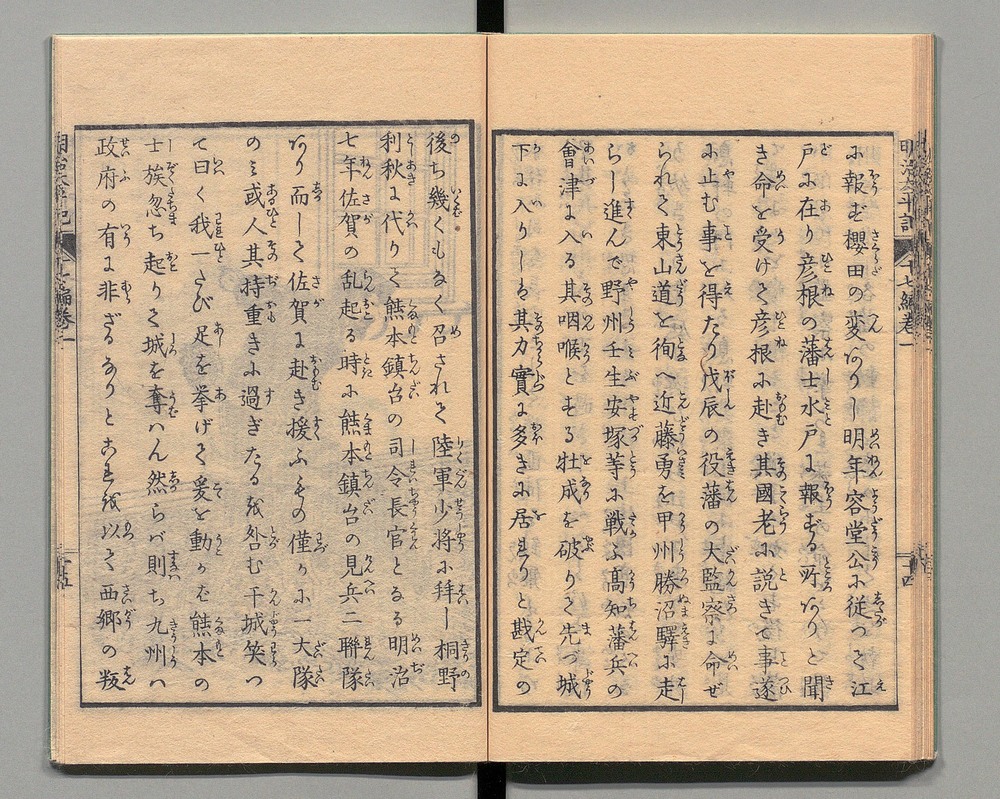 に報ず櫻田の変あり一明年容堂公に従つて江
戸に在り彦根の藩士水戸に報ずる所ありと聞
き命を受けて彦根に赴き其國老に説きて事遂
に止む事を得たり戊辰の役藩の大監察に命ぜ
られて東山道を徇へ近藤勇を甲州勝沼驛に走
らし進んで野州壬生安塚等に戦ふ高知藩兵の
會津に入る其咽喉とする牡成を破りて先づ城
下に入りしは其力實に多きに居れりと戡定の
後ち幾くもなく召されて陸軍少将に拜し桐野
利秋に代りて熊本鎮台の司令長官となる明治
七年佐賀の乱起る時に熊本鎮台の見兵二聯隊
あり而して佐賀に赴き援ふもの僅かに一大隊
のミ或人其持重きに過ぎたるを咎む干城笑つ
て曰く我一たび足を挙げて爰を動かバ熊本の
士族忽ち起りて城を奪ハん然らバ則ち九州ハ
政府の有に非ざるなりとこれを以て西郷の叛
明治太平記
十七編巻一
十四